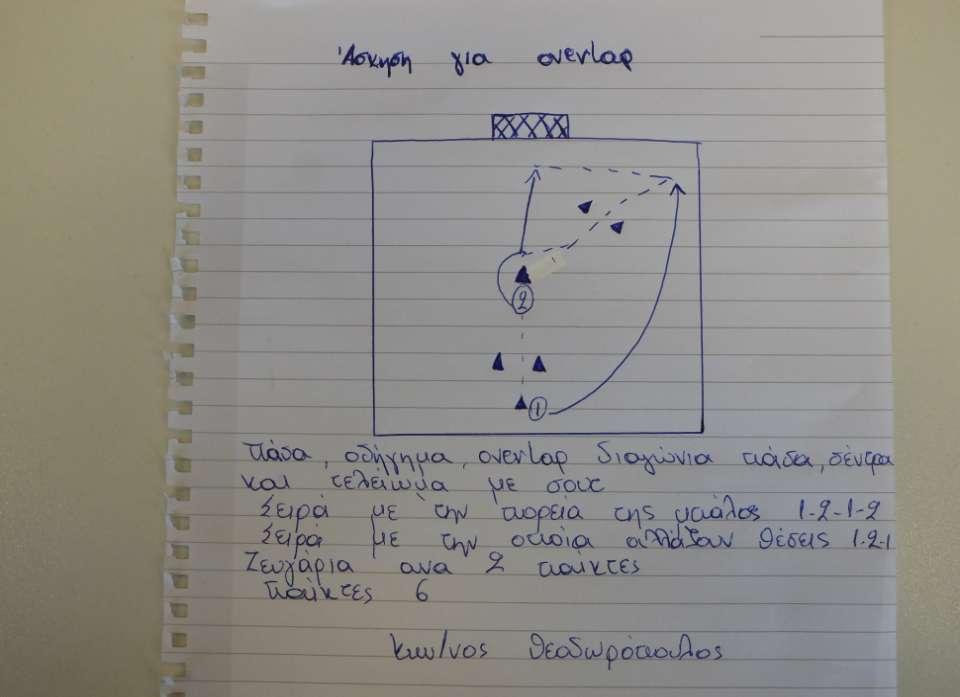 Άσκηση για overlap
2
1
Πάσα, οδήγημα, overlap διαγώνια πάσα, σέντρα
και τελείωμα με σουτ
Σειρά με την πορεία της μπάλας 1-2-1-2
Σειρά με την οποία αλλάζαν θέσεις 1-2-1
Ζευγάρια ανα 2 παίκτες
Παίκτες 6
Κων/νος Θεοδωρόπουλος